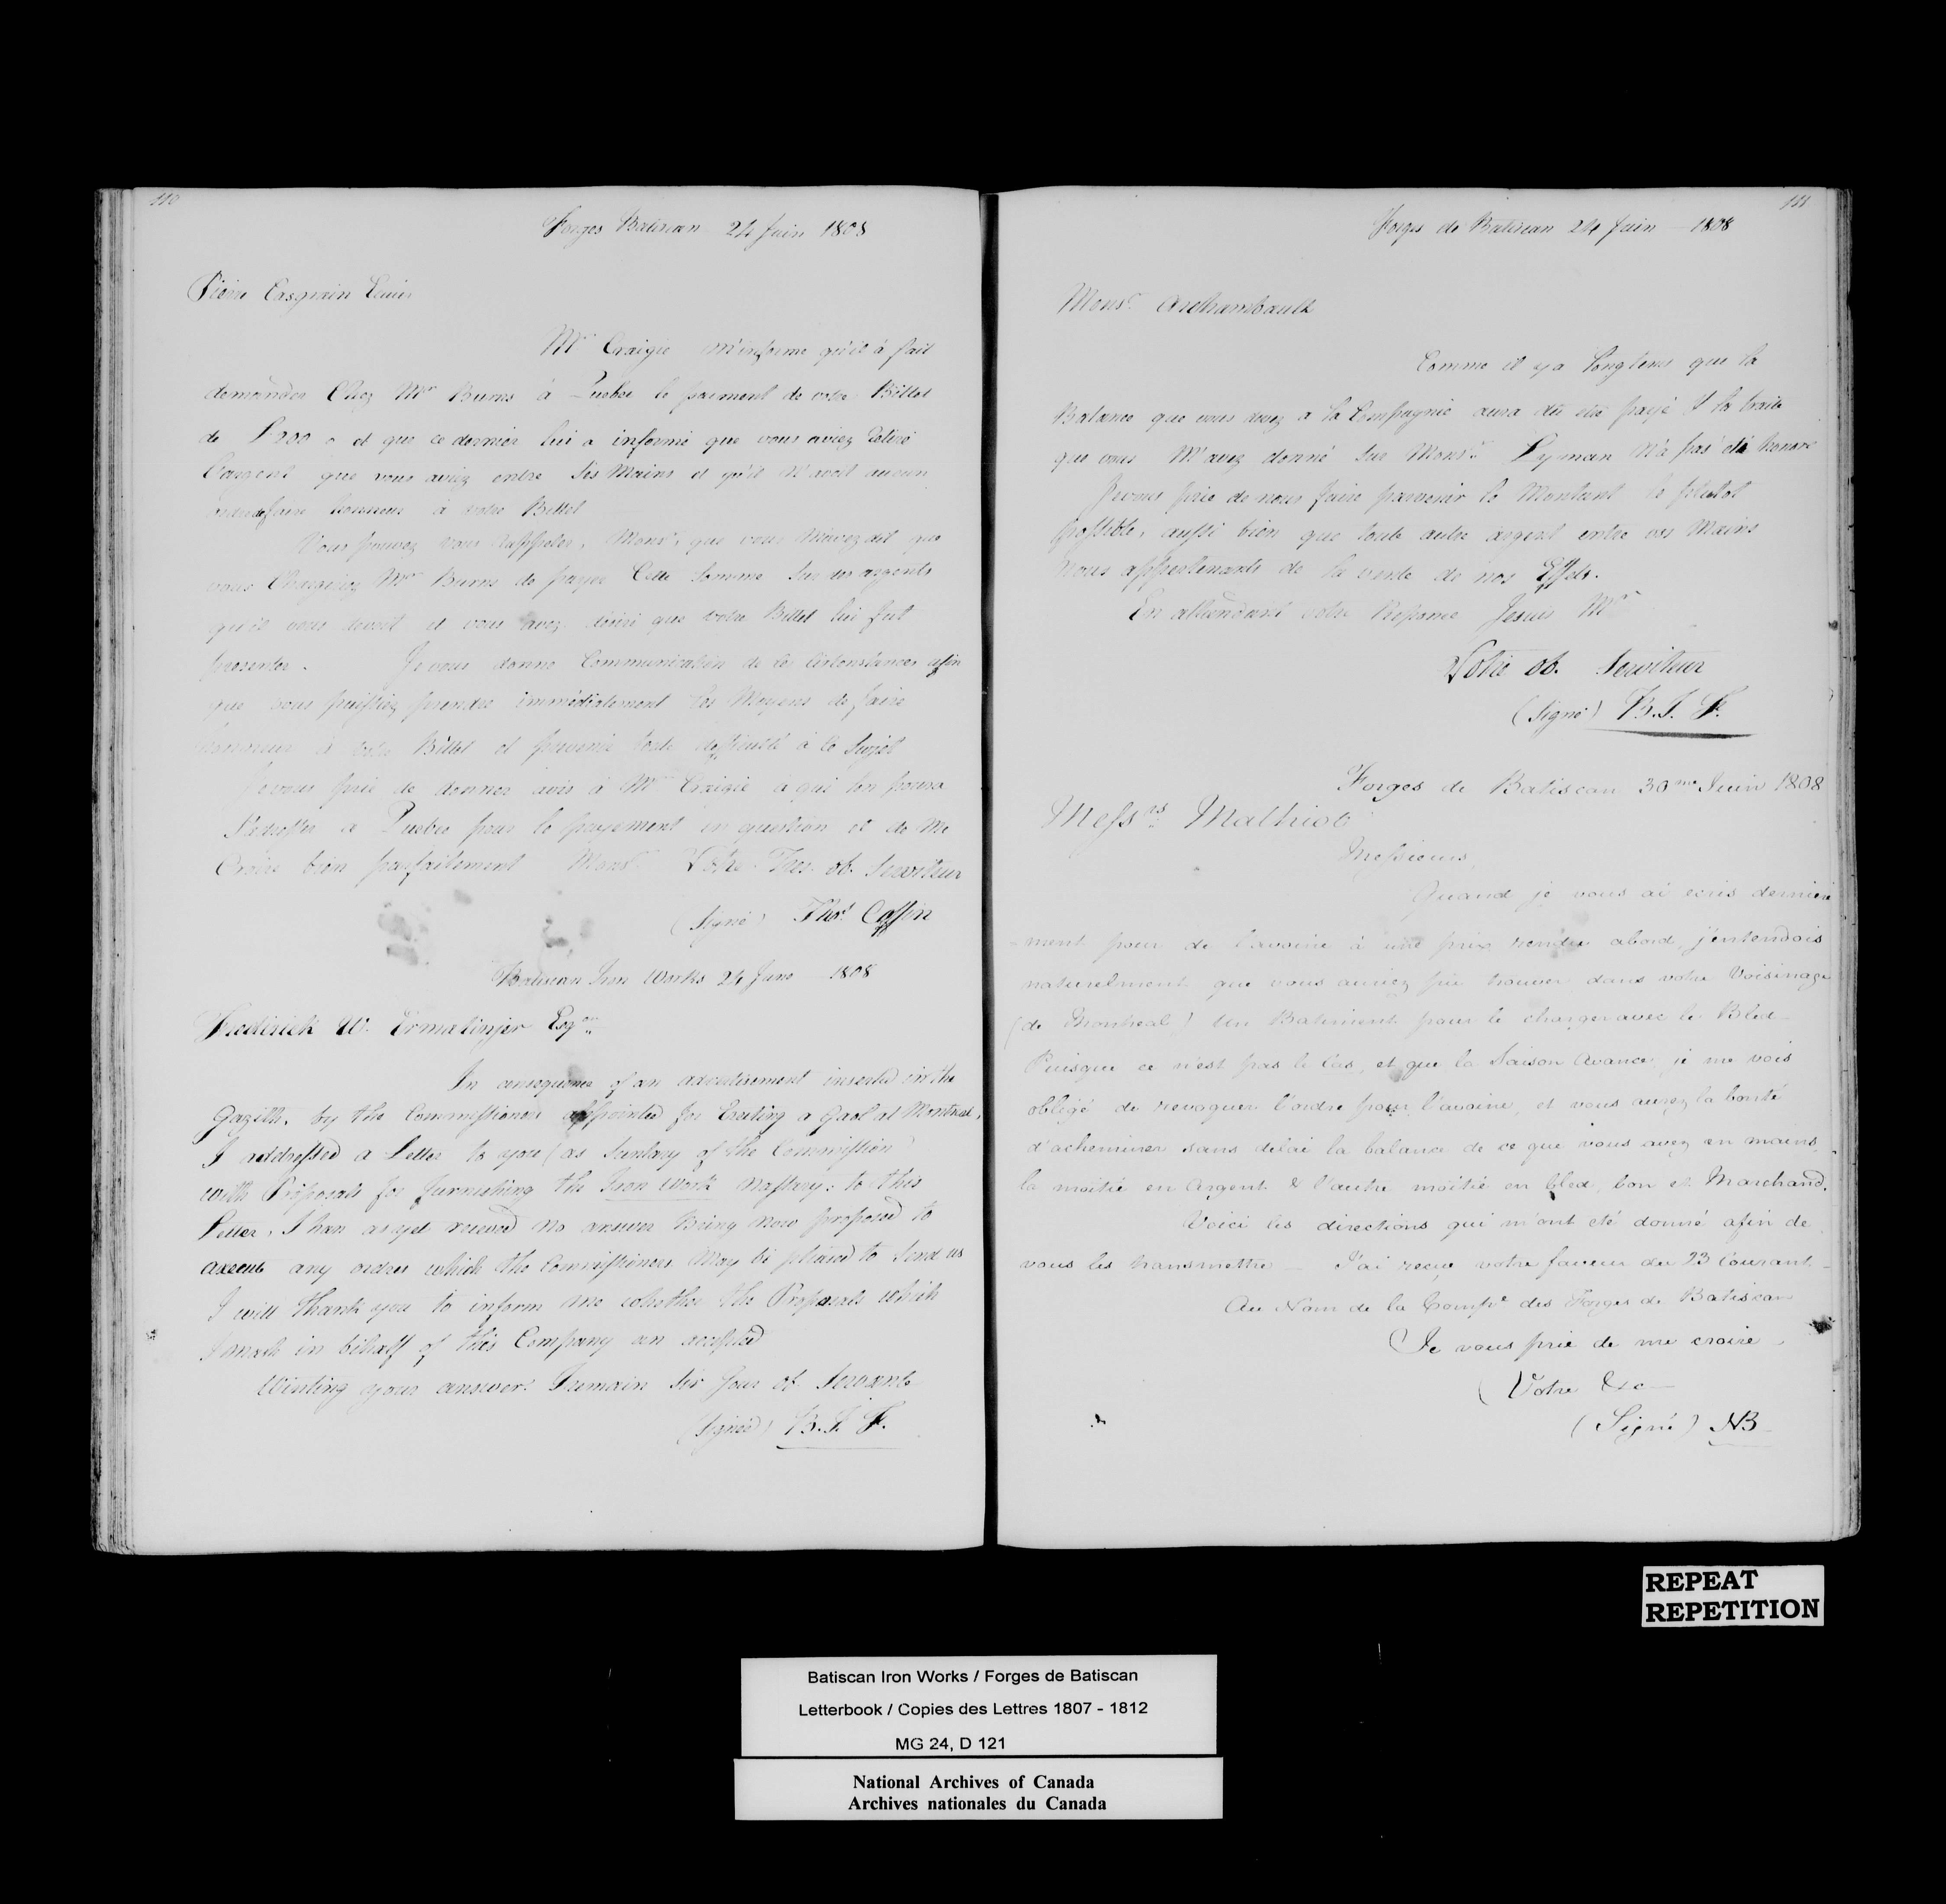 110
Forges Batiscan 24 Juin 1808
Pierre Casgrain Ecuier
Mr Craigie m'informe qu'il à fait
demander Chez Mr Burns à Quebec le paiment de votre Billet
de £200 " et que ce dernier lui a informé que vous aviez retiré
l'argent que vous aviez entre ses Mains et qu'il n'avoit aucun
ordre de faire honneur à votre Billet
Vous pouvez vous rappeler, Monsr, que vous m'avez dit que
vous Chargiez Mr Burns de payer Cette Somme sur des argents
qu'il vous devoit et vous avez désiré que votre Billet lui fut
presenter. Je vous donne Communication de ces Circonstances afin
que vous puissiez prendre immédiatement les Moyens de faire
honneur à votre Billet et prevenir toute difficulté à ce Sujet
Je vous prie de donner avis à Mr Craigie à qui l'on poura
s'adresser a Quebec pour le payement en question et de me
Croire bien parfaitement Monsr. Votre Tres. ob. Serviteur
(Signé) Thos. Coffin
Batiscan Iron Works 24 June 1808
Frederick W. Ermatinjer Esqre
In consequence of an advertisement inserted in the
Gazette, by the Commissioners appointed for Erecting a Gaol at Montreal,
I addressed a Letter to you (as Secretary of the Commission)
with Proposals for furnishing the Iron Work nessary: to this
Letter, I have as yet received no answer Being now prepared to
execute any orders which the Commissioners May be pleased to Send us
I will thank you to inform me whether the Proposals which
I made in behalf of this Company are accepted
Waiting your answer. I remain Sir Your ob. Servant
(Signed) B. I. F.
111
Forges de Batiscan 24 Juin 1808
Monsr. Archambault
Comme il y a longtems que la
Balance que vous devez a la Compagnie aura dû etre payé & la traite
que vous M'avez donné sur Monsr. Lyman n'a pas été honoré
Je vous prie de nous faire parvenir le Montant le plutot
possible, aussi bien que toute autre argent entre vos Mains
Nous appertenants de la vente de nos Effets.
En attendant votre Reponse Je suis Mr
Votre ob. Serviteur
(Signé) B. I. F.
Forges de Batiscan 30me Juin 1808
Messrs Mathiot
Messieurs,
Quand je vous ai ecris derniere
ment pour de l'avoine à une prix rendu abord, j'entendois
naturelment que vous auriez pû trouver dans votre Voisinage
(de Montreal) un Batiment pour le charger avec le Bled
Puisque ce n'est pas le Cas, et que la Saison Avance, je me vois
obligé de revoquer l'ordre pour l'avoine, et vous aurez la bonté
d'acheminer sans delai la balance de ce que vous avez en mains,
la moitié en Argent & l'autre moitié en bled, bon et Marchand.
Voici les directions qui m'ont eté donné afin de
vous les transmettre — J'ai reçue votre faveur du 23 Courant
Au Nom de la Compe des Forges de Batiscan
Je vous prie de me croire
(Votre &c—
(Signé) NB
REPEAT
REPETITION
Batiscan Iron Works / Forges de Batiscan
Letterbook / Copies des Lettres 1807 - 1812
MG 24, D 121
National Archives of Canada
Archives nationales du Canada